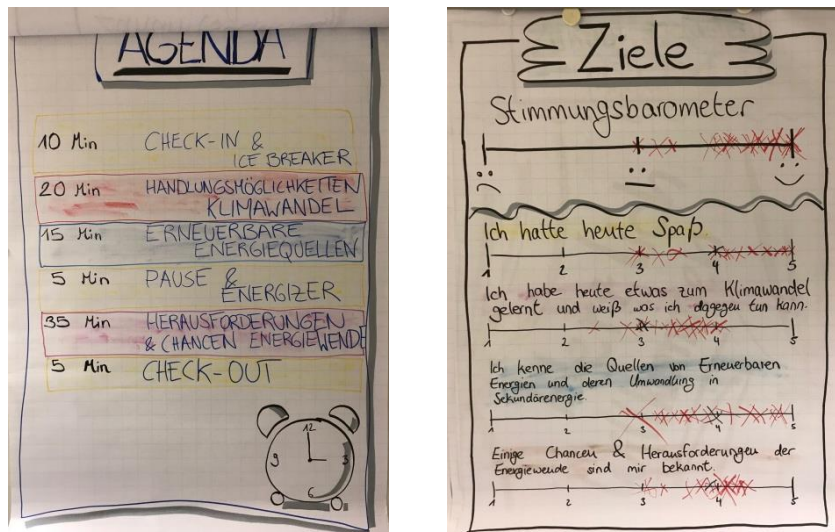 AGENDA
10 Min CHECK-IN &
ICE BREAKER
20 Min HANDLUNGSMÖGLICHKEITEN
KLIMAWANDEL
15 Min ERNEUERBARE
ENERGIEQUELLEN
5 Min PAUSE &
ENERGIZER
35 Min HERAUSFORDERUNGEN
& CHANCEN ENERGIEWENDE
5 Min CHECK-OUT
12
9 3
6
Ziele
Stimmungsbarometer
Ich hatte heute Spaß.
1 2 3 4 5
Ich habe heute etwas zum Klimawandel
gelernt und weiß was ich dagegen tun kann.
1 2 3 4 5
Ich kenne die Quellen von Erneuerbaren
Energien und deren Umwandlung in
Sekundärenergie.
1 2 3 4 5
Einige Chancen & Herausforderungen der
Energiewende sind mir bekannt.
1 2 3 4 5